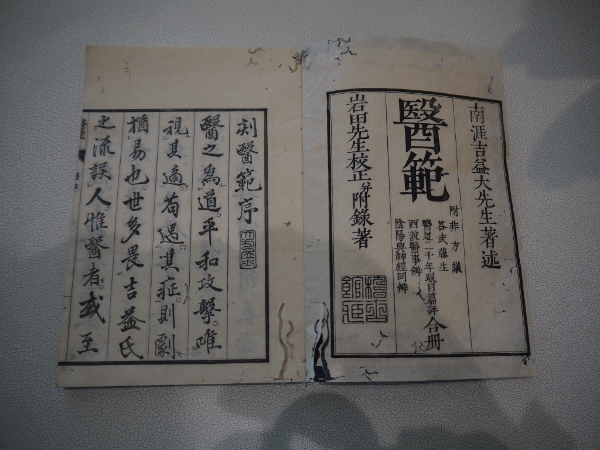 南涯吉益大先生著述
醫範
附非方議
答武藤生
醫道二千年眼目篇評
西説醫事辨
陰陽與神經同辨
合册
岩田先生校正并附錄著
刻醫範序
醫之為道平和攻擊唯
視其適苟遇其症則劇
猶易也世多畏吉益氏
之流誤人雅醫者或至